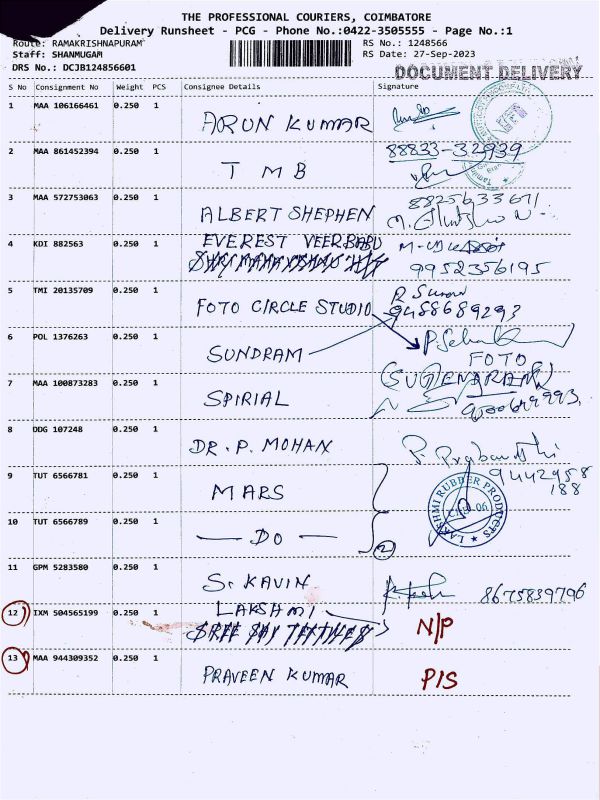 THE PROFESSIONAL COURIERS, COIMBATORE
Delivery Runsheet - PCG - Phone No.:0422-3505555 - Page No.:1
Route: RAMAKRISHNAPURAM
RS No.: 1248566
Staff: SHANMUGAM
RS Date: 27-Sep-2023
DRS No.: DCJB124856601
DOCUMENT DELIVERY
S No Consignment No Weight PCS Consignee Details Signature
1 MAA 106166461 0.250 1 ARUN KUMAR
2 MAA 861452394 0.250 1 T M B 88833-32939
3 MAA 572753063 0.250 1 ALBERT SHEPHEN 8825633671
4 KDI 882563 0.250 1 EVEREST VEERBABU
9952356195
5 TMI 20135709 0.250 1 FOTO CIRCLE STUDIO
9488689293
6 POL 1376263 0.250 1 SUNDRAM
FOTO
7 MAA 100873283 0.250 1 SPIRIAL
8 DDG 107248 0.250 1 DR. P. MOHAN
9442958
188
9 TUT 6566781 0.250 1 MARS
LAKSHMI RUBBER PRODUCTS
10 TUT 6566789 0.250 1 — DO — 2
11 GPM 5283580 0.250 1 S. KAVIN 8675839796
12 IXM 504565199 0.250 1 LAKSHMI N/P
13 MAA 944309352 0.250 1 PRAVEEN KUMAR P/S